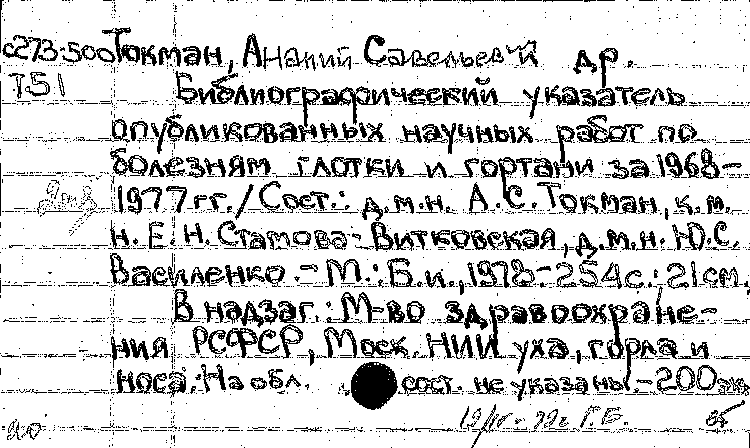 c273.500 Токман, Ананий Савельевич др.
Т51 Библиографический указатель
опубликованных научных работ по
болезням глотки и гортани за 1968-
1977 гг./ Сост.: д.м.н. А.С. Токман, к.м.
н. Е.Н. Стамова-Витковская, д.м.н. Ю.С.
Василенко.- М.: Б.и., 1978.- 254с.; 21см.
В надзаг.: М-во здравоохране-
ния РСФСР, Моск. НИИ уха, горла и
носа. На обл. сост. не указаны.- 200